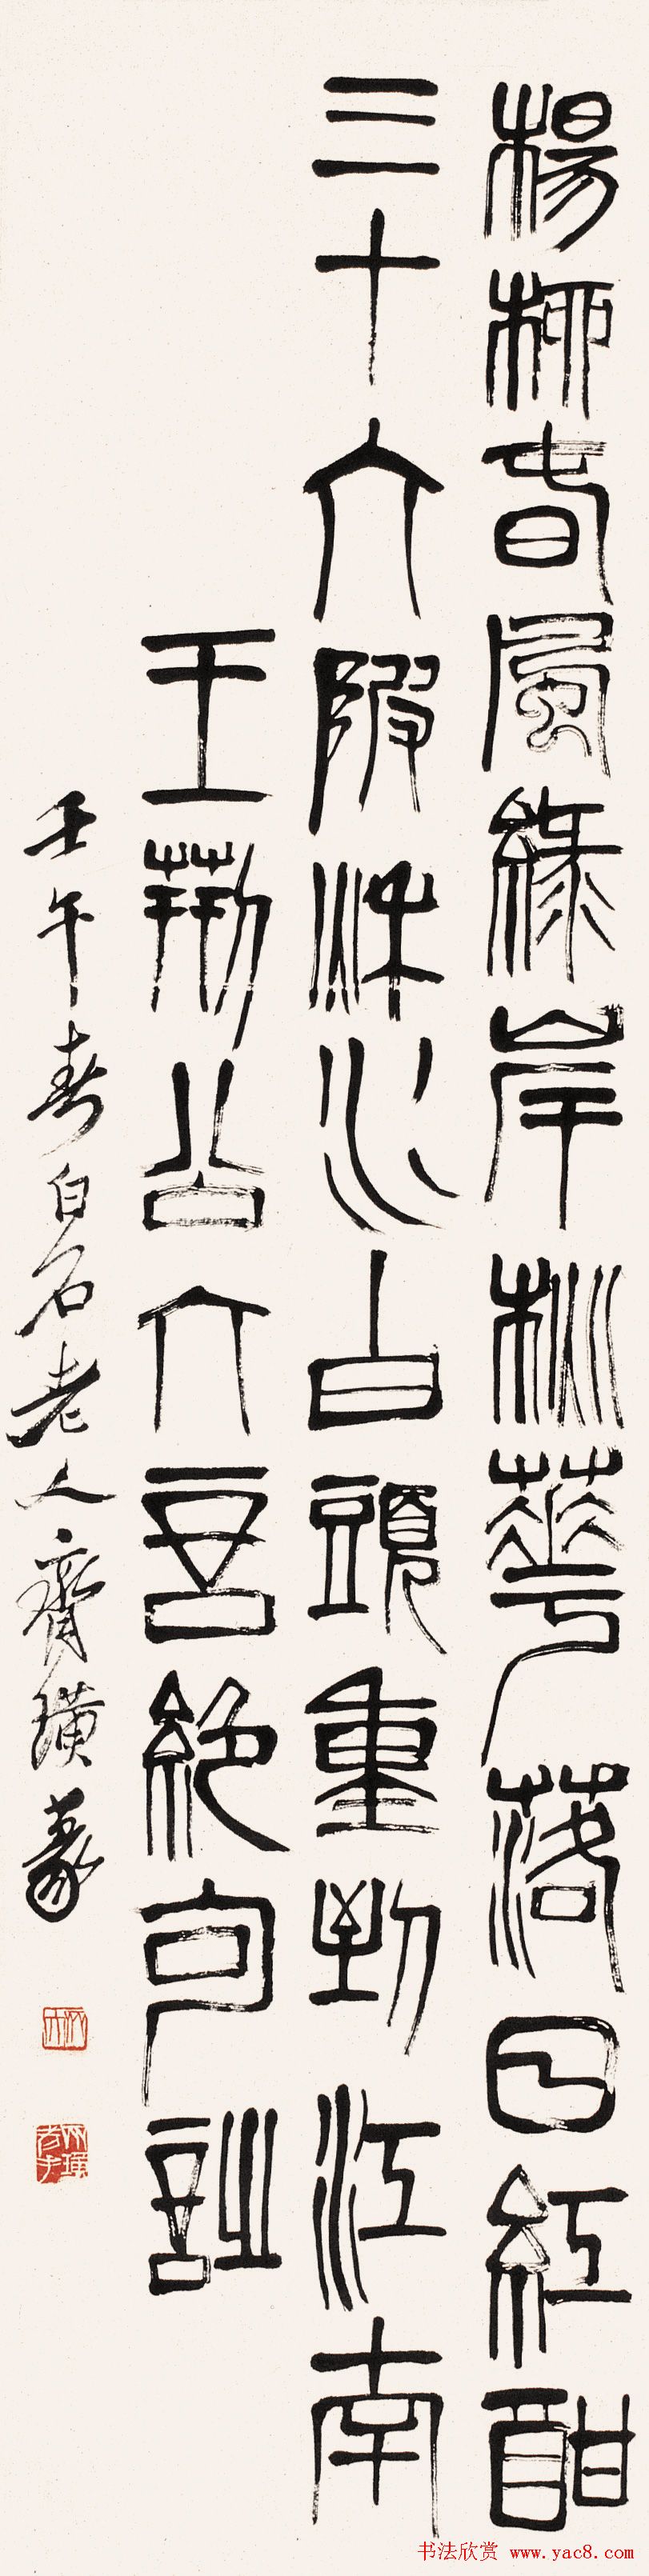 楊柳春風綠岸桃華落日紅酣
三十六陂秋水白頭重到江南
王荊公六言絕句詩
壬午春白石老人齊璜篆
书法欣赏 www.yac8.com